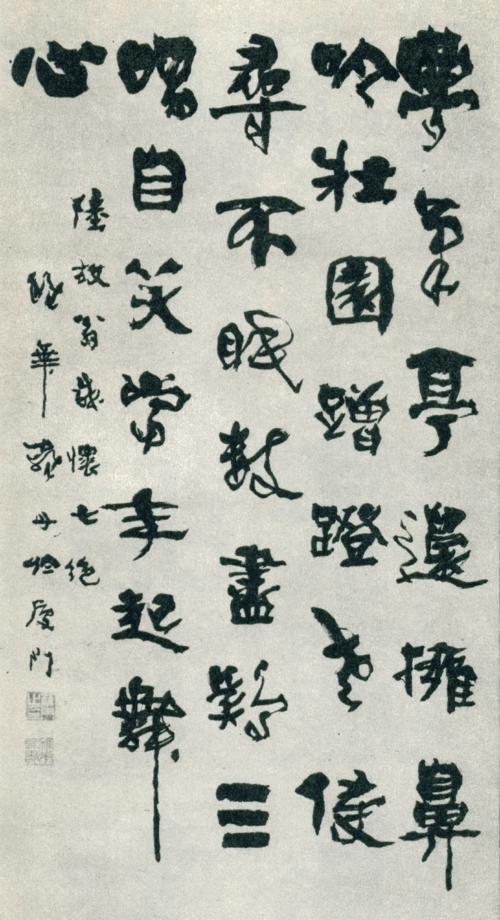 夢筆亭邊擁鼻
吟壯圖蹭蹬老侵
尋不眠數盡鷄三
唱自笑當年起舞
心
陸放翁感懷七絕
羅丹於厦門